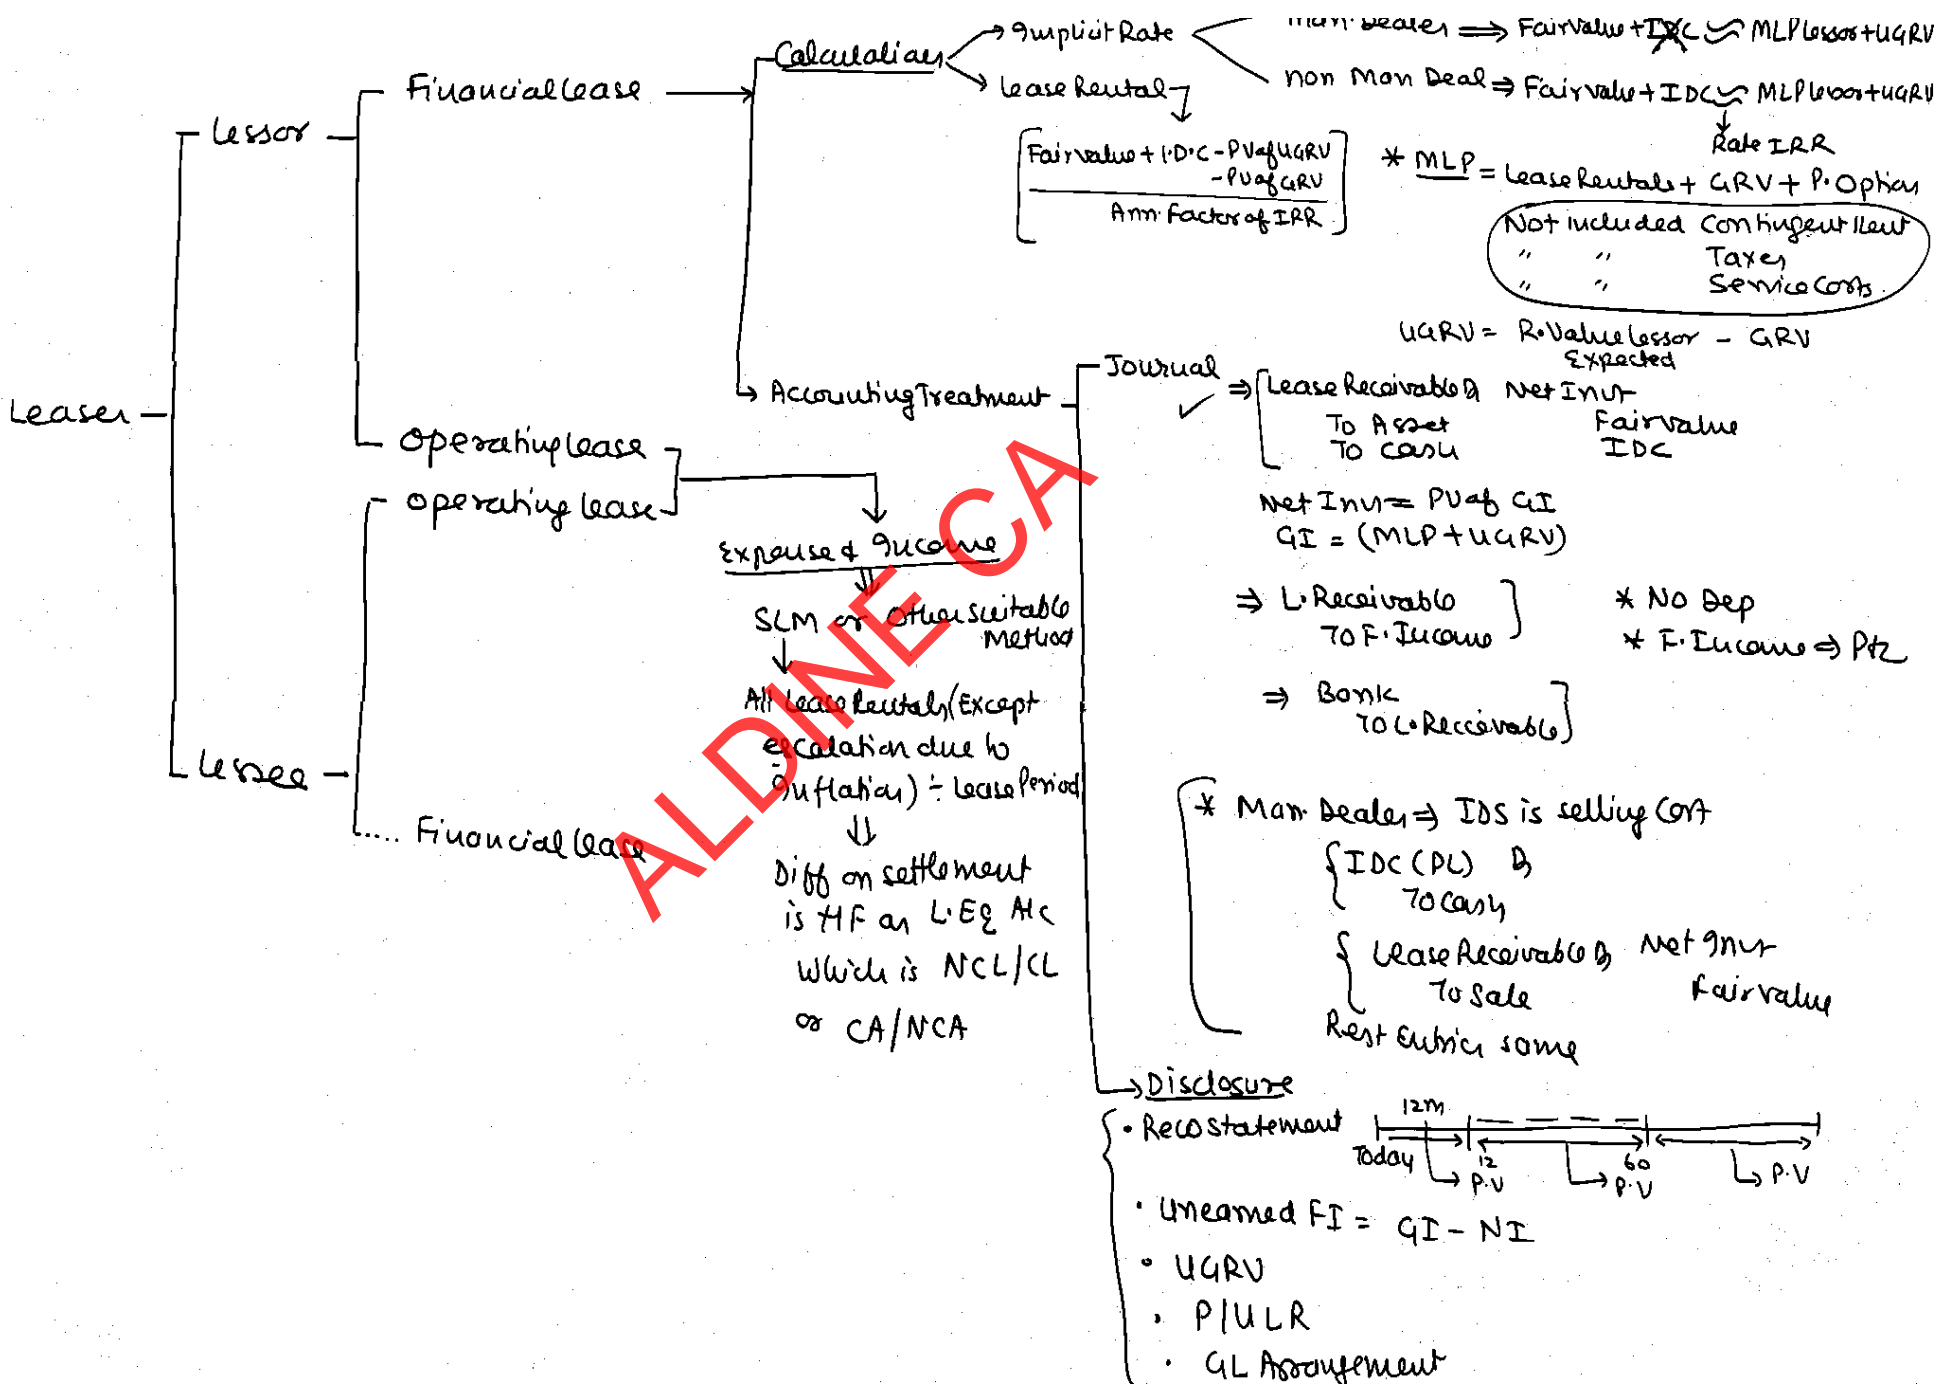 Leases
Lessor
Financial lease
Calculations
Implicit Rate
Man. Dealer ⇒ Fair value + IDC ≈ MLP lessor + UGRV
non Man Deal ⇒ Fair value + IDC ≈ MLP lessor + UGRV
Rate IRR
Lease Rental
Fair value + I.D.C - PV of UGRV
- PV of GRV
Ann. Factor of IRR
* MLP = Lease Rentals + GRV + P. Option
Not included Contingent Rent
" " Taxes
" " Service Costs
UGRV = R. Value lessor - GRV
Expected
Accounting Treatment
Journal
⇒ Lease Receivable Dr Net Invt
To Asset Fair value
To Cash IDC
Net Invt = PV of GI
GI = (MLP + UGRV)
⇒ L. Receivable
To F. Income
* No Dep
* F. Income ⇒ P&L
⇒ Bank
To L. Receivable
* Man. Dealer ⇒ IDS is selling Cost
IDC (PL) Dr
To Cash
Lease Receivable Dr Net Invt
To Sale Fair value
Rest Entries same
Disclosure
• Reco statement
12m
Today 12 60
P.V P.V P.V
• Unearned FI = GI - NI
• UGRV
• P/ULR
• GL Arrangement
Operating lease
Operating lease
Expense & Income
SLM or Other suitable
Method
All Lease Rentals (Except
escalation due to
Inflation) ÷ Lease Period
Diff on settlement
is as L. Eq A/c
Which is NCL/CL
or CA/NCA
Lessee
Financial lease
ALDINE CA